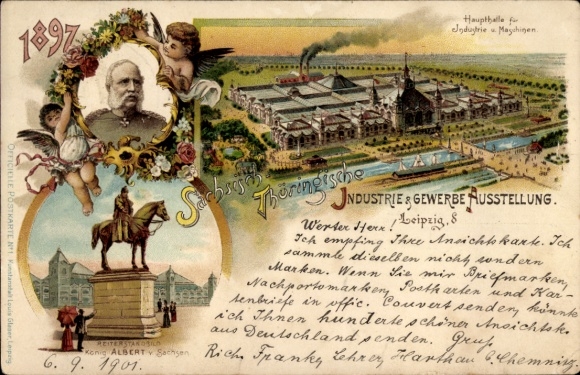 1897
Haupthalle für
Industrie u. Maschinen.
Sächsisch
Thüringische
INDUSTRIE & GEWERBE AUSSTELLUNG.
Leipzig,
OFFICIELLE POSTKARTE Nº1
Kunstanstalt Louis Glaser, Leipzig.
REITERSTANDBILD
König ALBERT v. Sachsen.
Werter Herr!
Ich empfing Ihre Ansichtskarte. Ich
sammle dieselben nicht sondern
Marken. Wenn Sie mir Briefmarken,
Nachportomarken, Postkarten und Kar-
tenbriefe in offic. Couvert senden, könnte
ich Ihnen hunderte schöner Ansichtsk.
aus Deutschland senden. Gruß
Rich. Franky Lehrer, Harthau b. Chemnitz.
6. 9. 1901.